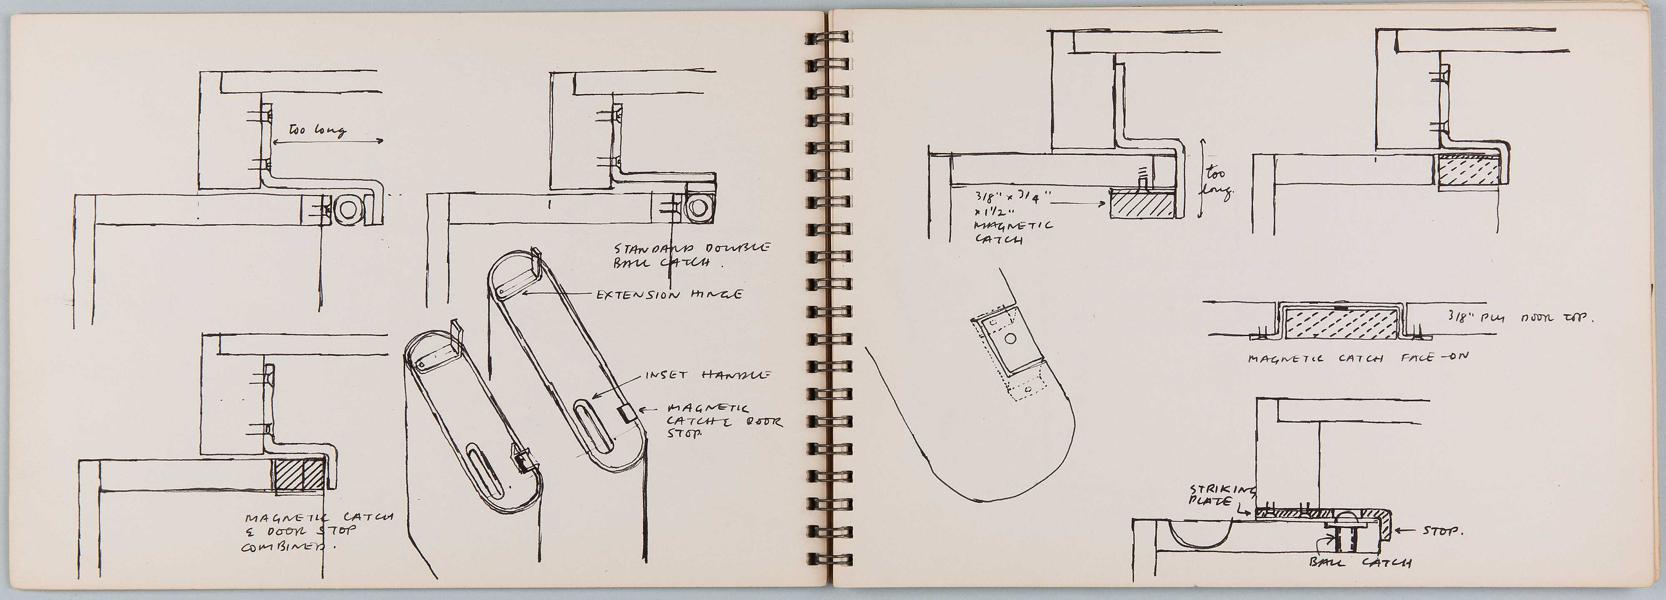 too long
STANDARD DOUBLE
BALL CATCH.
EXTENSION HINGE
INSET HANDLE
MAGNETIC
CATCH & DOOR
STOP
MAGNETIC CATCH
& DOOR STOP
COMBINED.
3/8" x 3/4"
x 1 1/2"
MAGNETIC
CATCH
too
long.
3/8" PLY DOOR TOP.
MAGNETIC CATCH FACE-ON
STRIKING
PLATE
STOP.
BALL CATCH